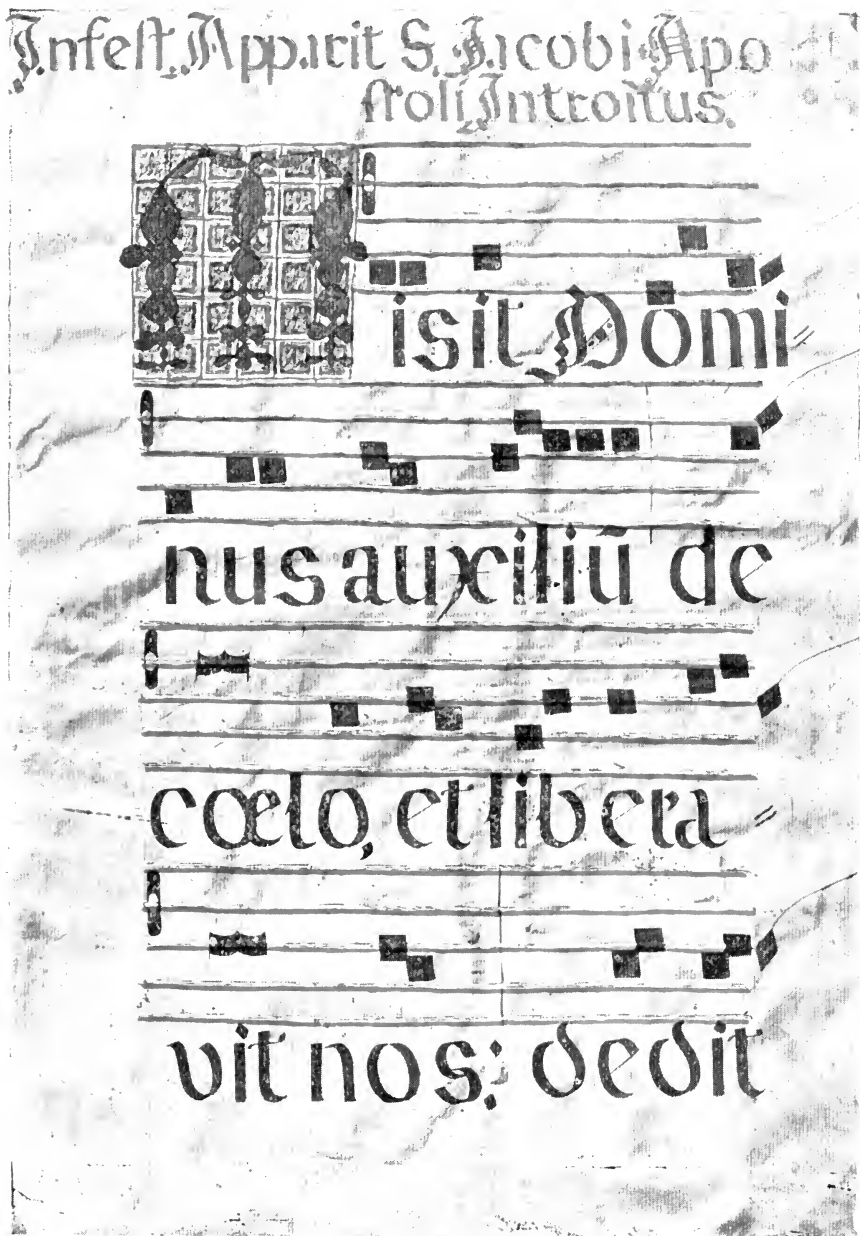 In fest. Apparit S. Jacobi Apo
stoli, Introitus.
Misit Domi
nus auxiliū de
cœlo, et libera
vit nos: dedit